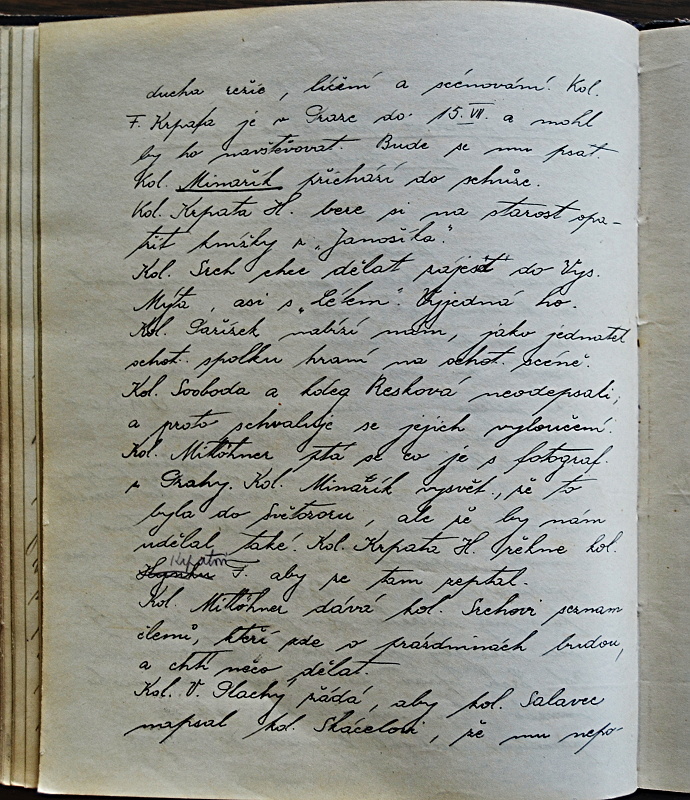 ducha režie, líčení a scénování. Kol.
F. Krpata je v Praze do 15. VII. a mohl
by ho navštěvovat. Bude se mu psát.
Kol. Minařík přichází do schůze.
Kol. Krpata H. bere si na starost opa-
třit knížky z „Janošíka".
Kol. Srch chce dělat zájezd do Vys.
Mýta, asi s „Létem". Vyjedná ho.
Kol. Pařízek nabízí nám, jako jednatel
ochot. spolku hraní na ochot. scéně.
Kol. Svoboda a kolega Resková neodepsali,
a proto schvaluje se jejich vyloučení.
Kol. Mitlöhner ptá se co je s fotograf.
z Prahy. Kol. Minařík vysvět., že to
bylo do Světozoru, ale že by nám
udělal také. Kol. Krpata H. řekne kol.
Krpatovi F. aby se tam zeptal.
Kol. Mitlöhner dává kol. Srchovi seznam
členů, kteří zde o prázdninách budou,
a chtí něco dělat.
Kol. V. Plachý žádá, aby kol. Salavec
napsal kol. Skácelovi, že mu nepo-